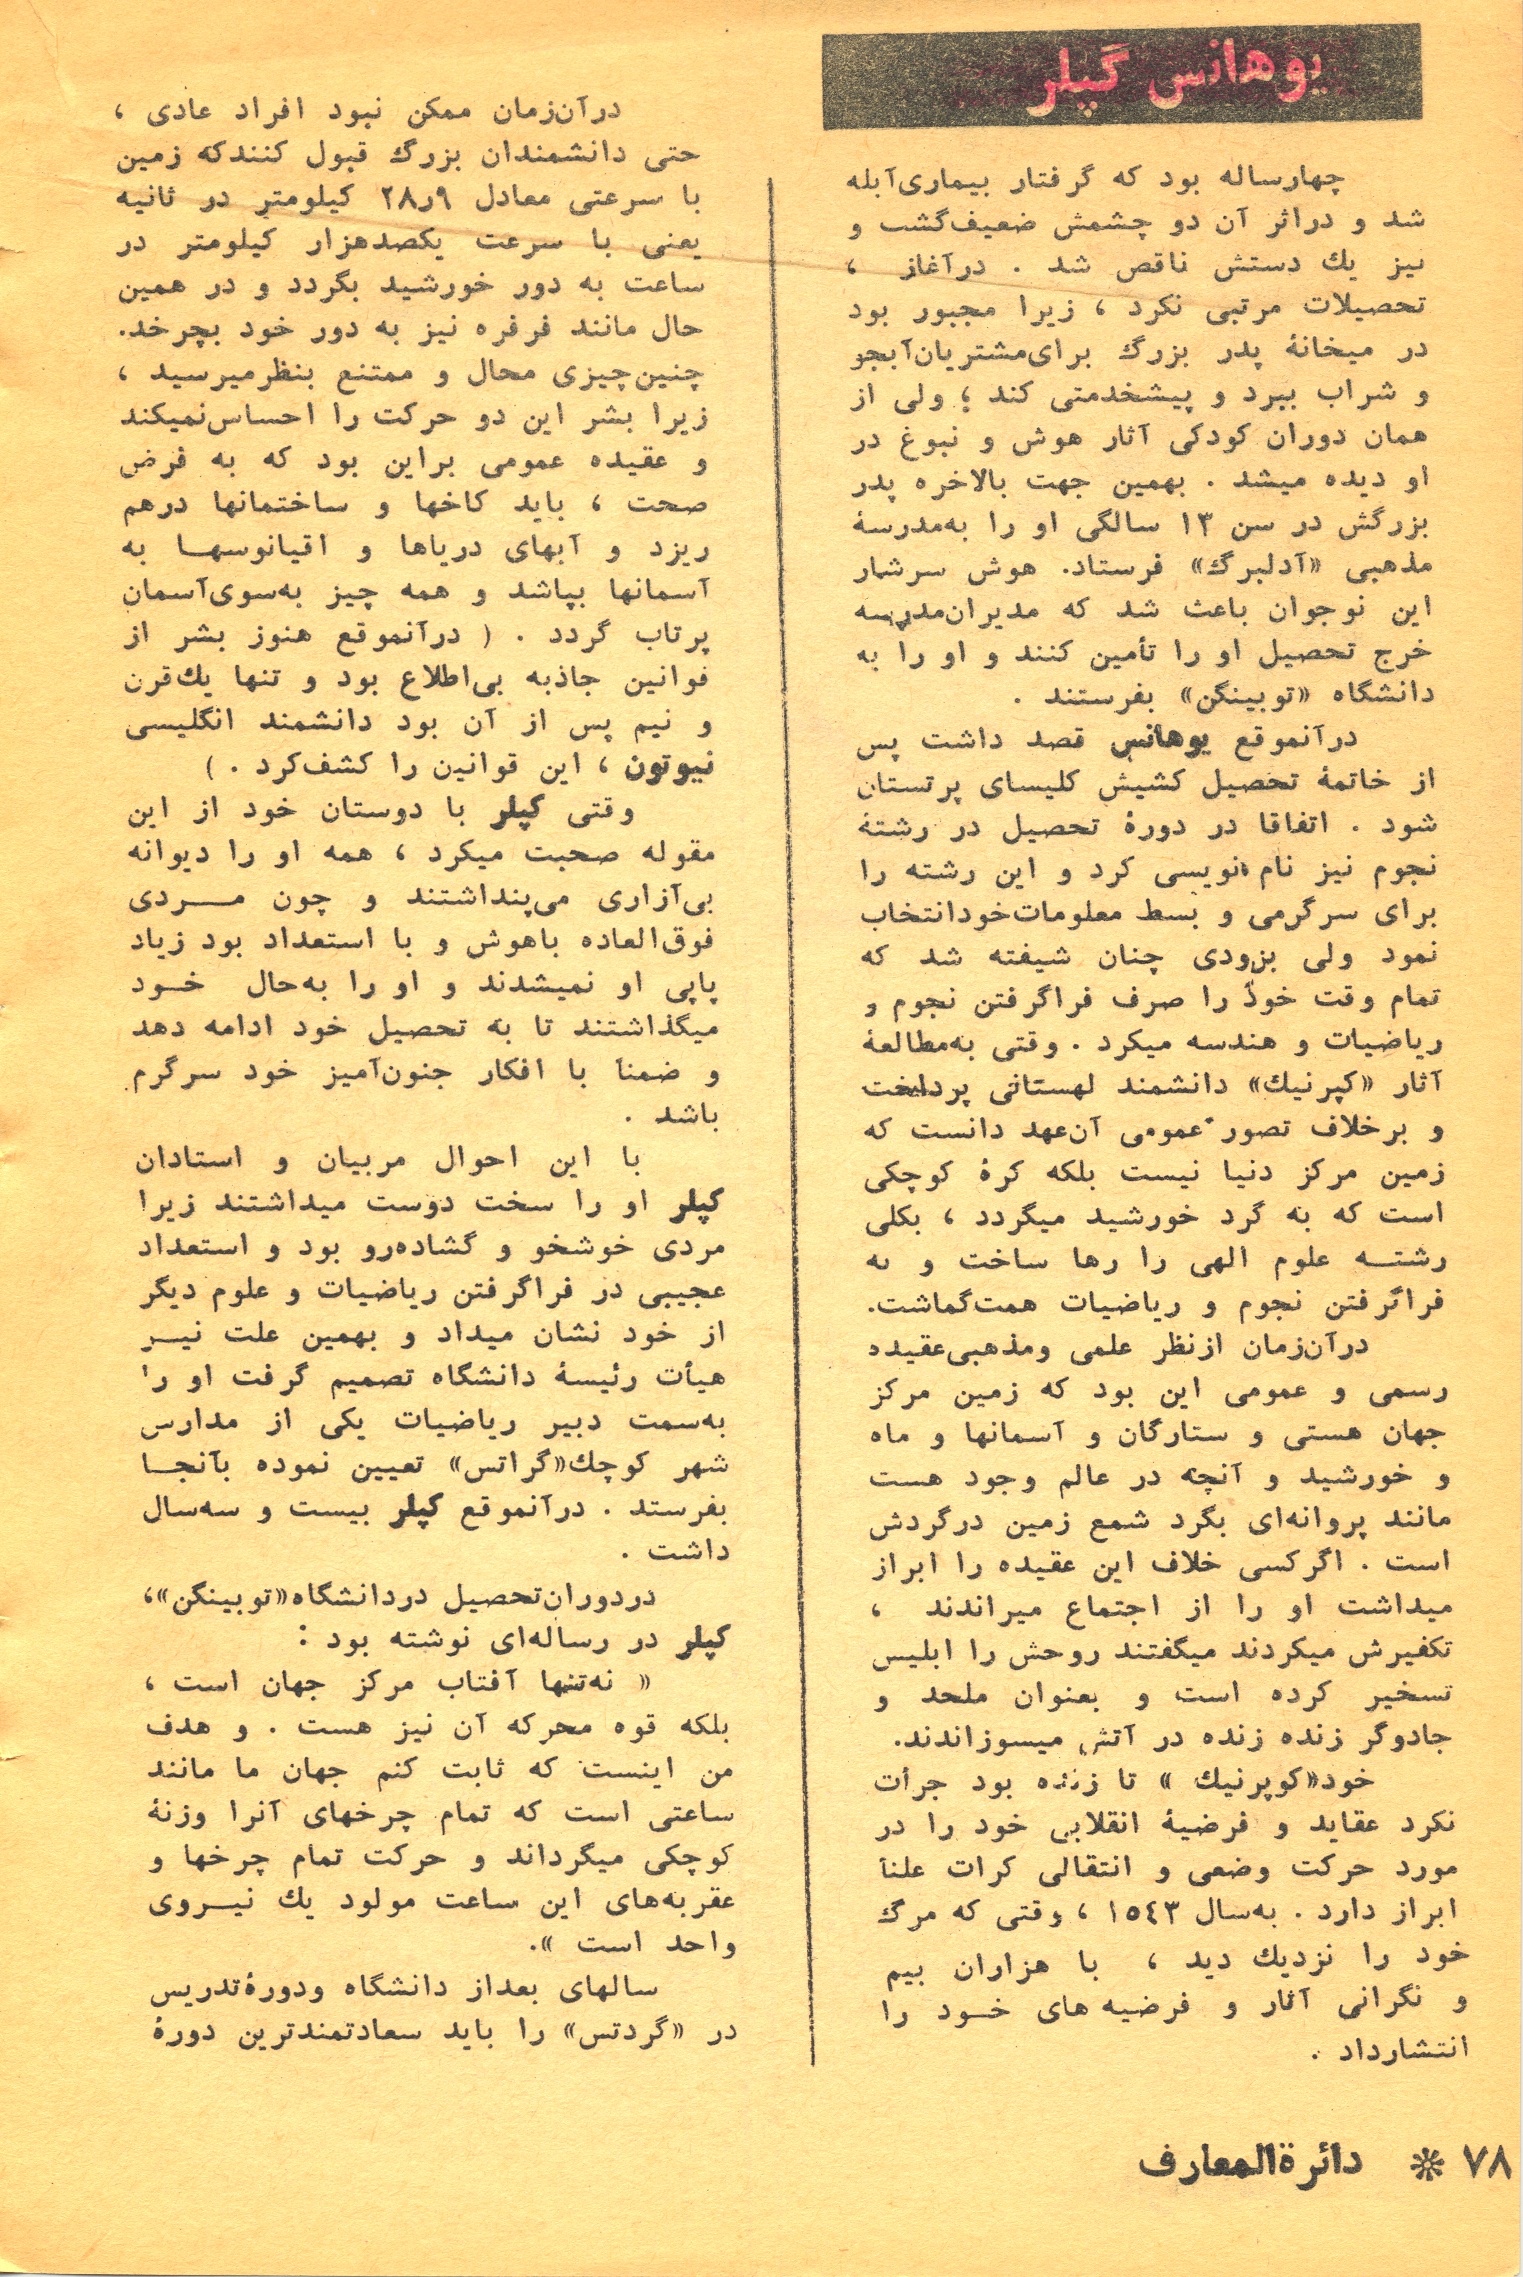 یوهانس گپلر
چهارساله بود که گرفتار بیماری‌آبله
شد و دراثر آن دو چشمش ضعیف‌گشت و
نیز یك دستش ناقص شد . درآغاز ،
تحصیلات مرتبی نکرد ، زیرا مجبور بود
در میخانهٔ پدر بزرگ برای‌مشتریان‌آبجو
و شراب ببرد و پیشخدمتی کند ؛ ولی از
همان دوران کودکی آثار هوش و نبوغ در
او دیده میشد . بهمین جهت بالاخره پدر
بزرگش در سن ۱۳ سالگی او را به‌مدرسهٔ
مذهبی «آدلبرگ» فرستاد. هوش سرشار
این نوجوان باعث شد که مدیران‌مدرسه
خرج تحصیل او را تأمین کنند و او را به
دانشگاه «توبینگن» بفرستند .
درآنموقع یوهانس قصد داشت پس
از خاتمهٔ تحصیل کشیش کلیسای پرتستان
شود . اتفاقا در دورهٔ تحصیل در رشتهٔ
نجوم نیز نام نویسی کرد و این رشته را
برای سرگرمی و بسط معلومات‌خودانتخاب
نمود ولی بزودی چنان شیفته شد که
تمام وقت خود را صرف فراگرفتن نجوم و
ریاضیات و هندسه میکرد . وقتی به‌مطالعهٔ
آثار «کپرنیك» دانشمند لهستانی پرداخت
و برخلاف تصور عمومی آن‌عهد دانست که
زمین مرکز دنیا نیست بلکه کرهٔ کوچکی
است که به گرد خورشید میگردد ، بکلی
رشتـه علوم الهی را رها ساخت و به
فراگرفتن نجوم و ریاضیات همت‌گماشت.
درآن‌زمان ازنظر علمی ومذهبی‌عقیده
رسمی و عمومی این بود که زمین مرکز
جهان هستی و ستارگان و آسمانها و ماه
و خورشید و آنچه در عالم وجود هست
مانند پروانه‌ای بگرد شمع زمین درگردش
است . اگرکسی خلاف این عقیده را ابراز
میداشت او را از اجتماع میراندند ،
تکفیرش میکردند میگفتند روحش را ابلیس
تسخیر کرده است و بعنوان ملحد و
جادوگر زنده زنده در آتش میسوزاندند.
خود«کوپرنیك » تا زنده بود جرأت
نکرد عقاید و فرضیهٔ انقلابی خود را در
مورد حرکت وضعی و انتقالی کرات علناً
ابراز دارد . به‌سال ۱۵۴۳ ، وقتی که مرگ
خود را نزدیك دید ، با هزاران بیم
و نگرانی آثار و فرضیه های خـود را
انتشارداد .
درآن‌زمان ممکن نبود افراد عادی ،
حتی دانشمندان بزرگ قبول کنندکه زمین
با سرعتی معادل ۲۸٫۹ کیلومتر در ثانیه
یعنی با سرعت یکصدهزار کیلومتر در
ساعت به دور خورشید بگردد و در همین
حال مانند فرفره نیز به دور خود بچرخد.
چنین‌چیزی محال و ممتنع بنظرمیرسید ،
زیرا بشر این دو حرکت را احساس‌نمیکند
و عقیده عمومی براین بود که به فرض
صحت ، باید کاخها و ساختمانها درهم
ریزد و آبهای دریاها و اقیانوسهـا به
آسمانها بپاشد و همه چیز به‌سوی‌آسمان
پرتاب گردد . ( درآنموقع هنوز بشر از
قوانین جاذبه بی‌اطلاع بود و تنها یك‌قرن
و نیم پس از آن بود دانشمند انگلیسی
نیوتون ، این قوانین را کشف‌کرد . )
وقتی کپلر با دوستان خود از این
مقوله صحبت میکرد ، همه او را دیوانه
بی‌آزاری می‌پنداشتند و چون مـردی
فوق‌العاده باهوش و با استعداد بود زیاد
پاپی او نمیشدند و او را به‌حال خـود
میگذاشتند تا به تحصیل خود ادامه دهد
و ضمناً با افکار جنون‌آمیز خود سرگرم
باشد .
با این احوال مربیان و استادان
کپلر او را سخت دوست میداشتند زیرا
مردی خوشخو و گشاده‌رو بود و استعداد
عجیبی در فراگرفتن ریاضیات و علوم دیگر
از خود نشان میداد و بهمین علت نیـز
هیأت رئیسهٔ دانشگاه تصمیم گرفت او را
به‌سمت دبیر ریاضیات یکی از مدارس
شهر کوچك«گراتس» تعیین نموده بآنجـا
بفرستد . درآنموقع کپلر بیست و سه‌سال
داشت .
دردوران‌تحصیل دردانشگاه«توبینگن»،
کپلر در رساله‌ای نوشته بود :
« نه‌تنها آفتاب مرکز جهان است ،
بلکه قوه محرکه آن نیز هست . و هدف
من اینست که ثابت کنم جهان ما مانند
ساعتی است که تمام چرخهای آنرا وزنهٔ
کوچکی میگرداند و حرکت تمام چرخها و
عقربه‌های این ساعت مولود یك نیـروی
واحد است ».
سالهای بعداز دانشگاه ودورهٔ‌تدریس
در «گردتس» را باید سعادتمندترین دورهٔ
۷۸ * دائرةالمعارف